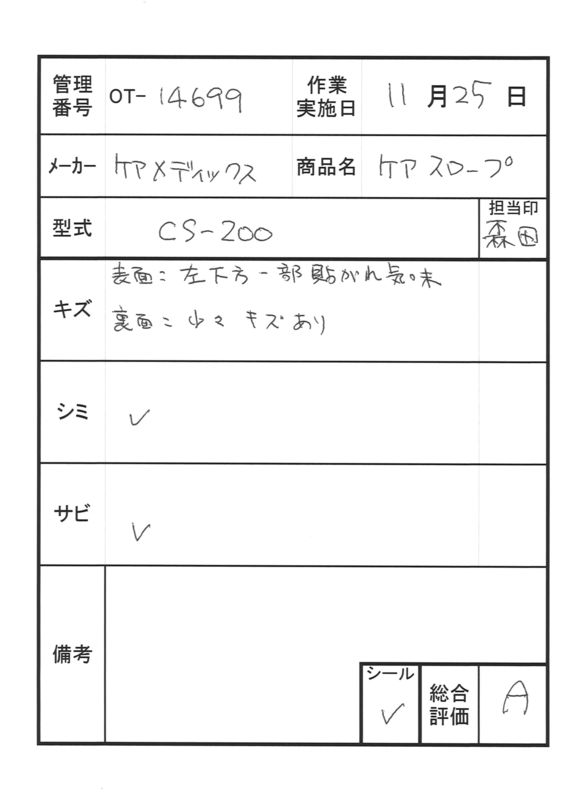 管理番号 OT-14699 作業実施日 11月25日
メーカー ケアメディックス 商品名 ケアスロープ
型式 CS-200 担当印 森田
キズ 表面：左下方一部貼がれ気味
裏面：少々キズあり
シミ ✓
サビ ✓
備考
シール ✓ 総合評価 A